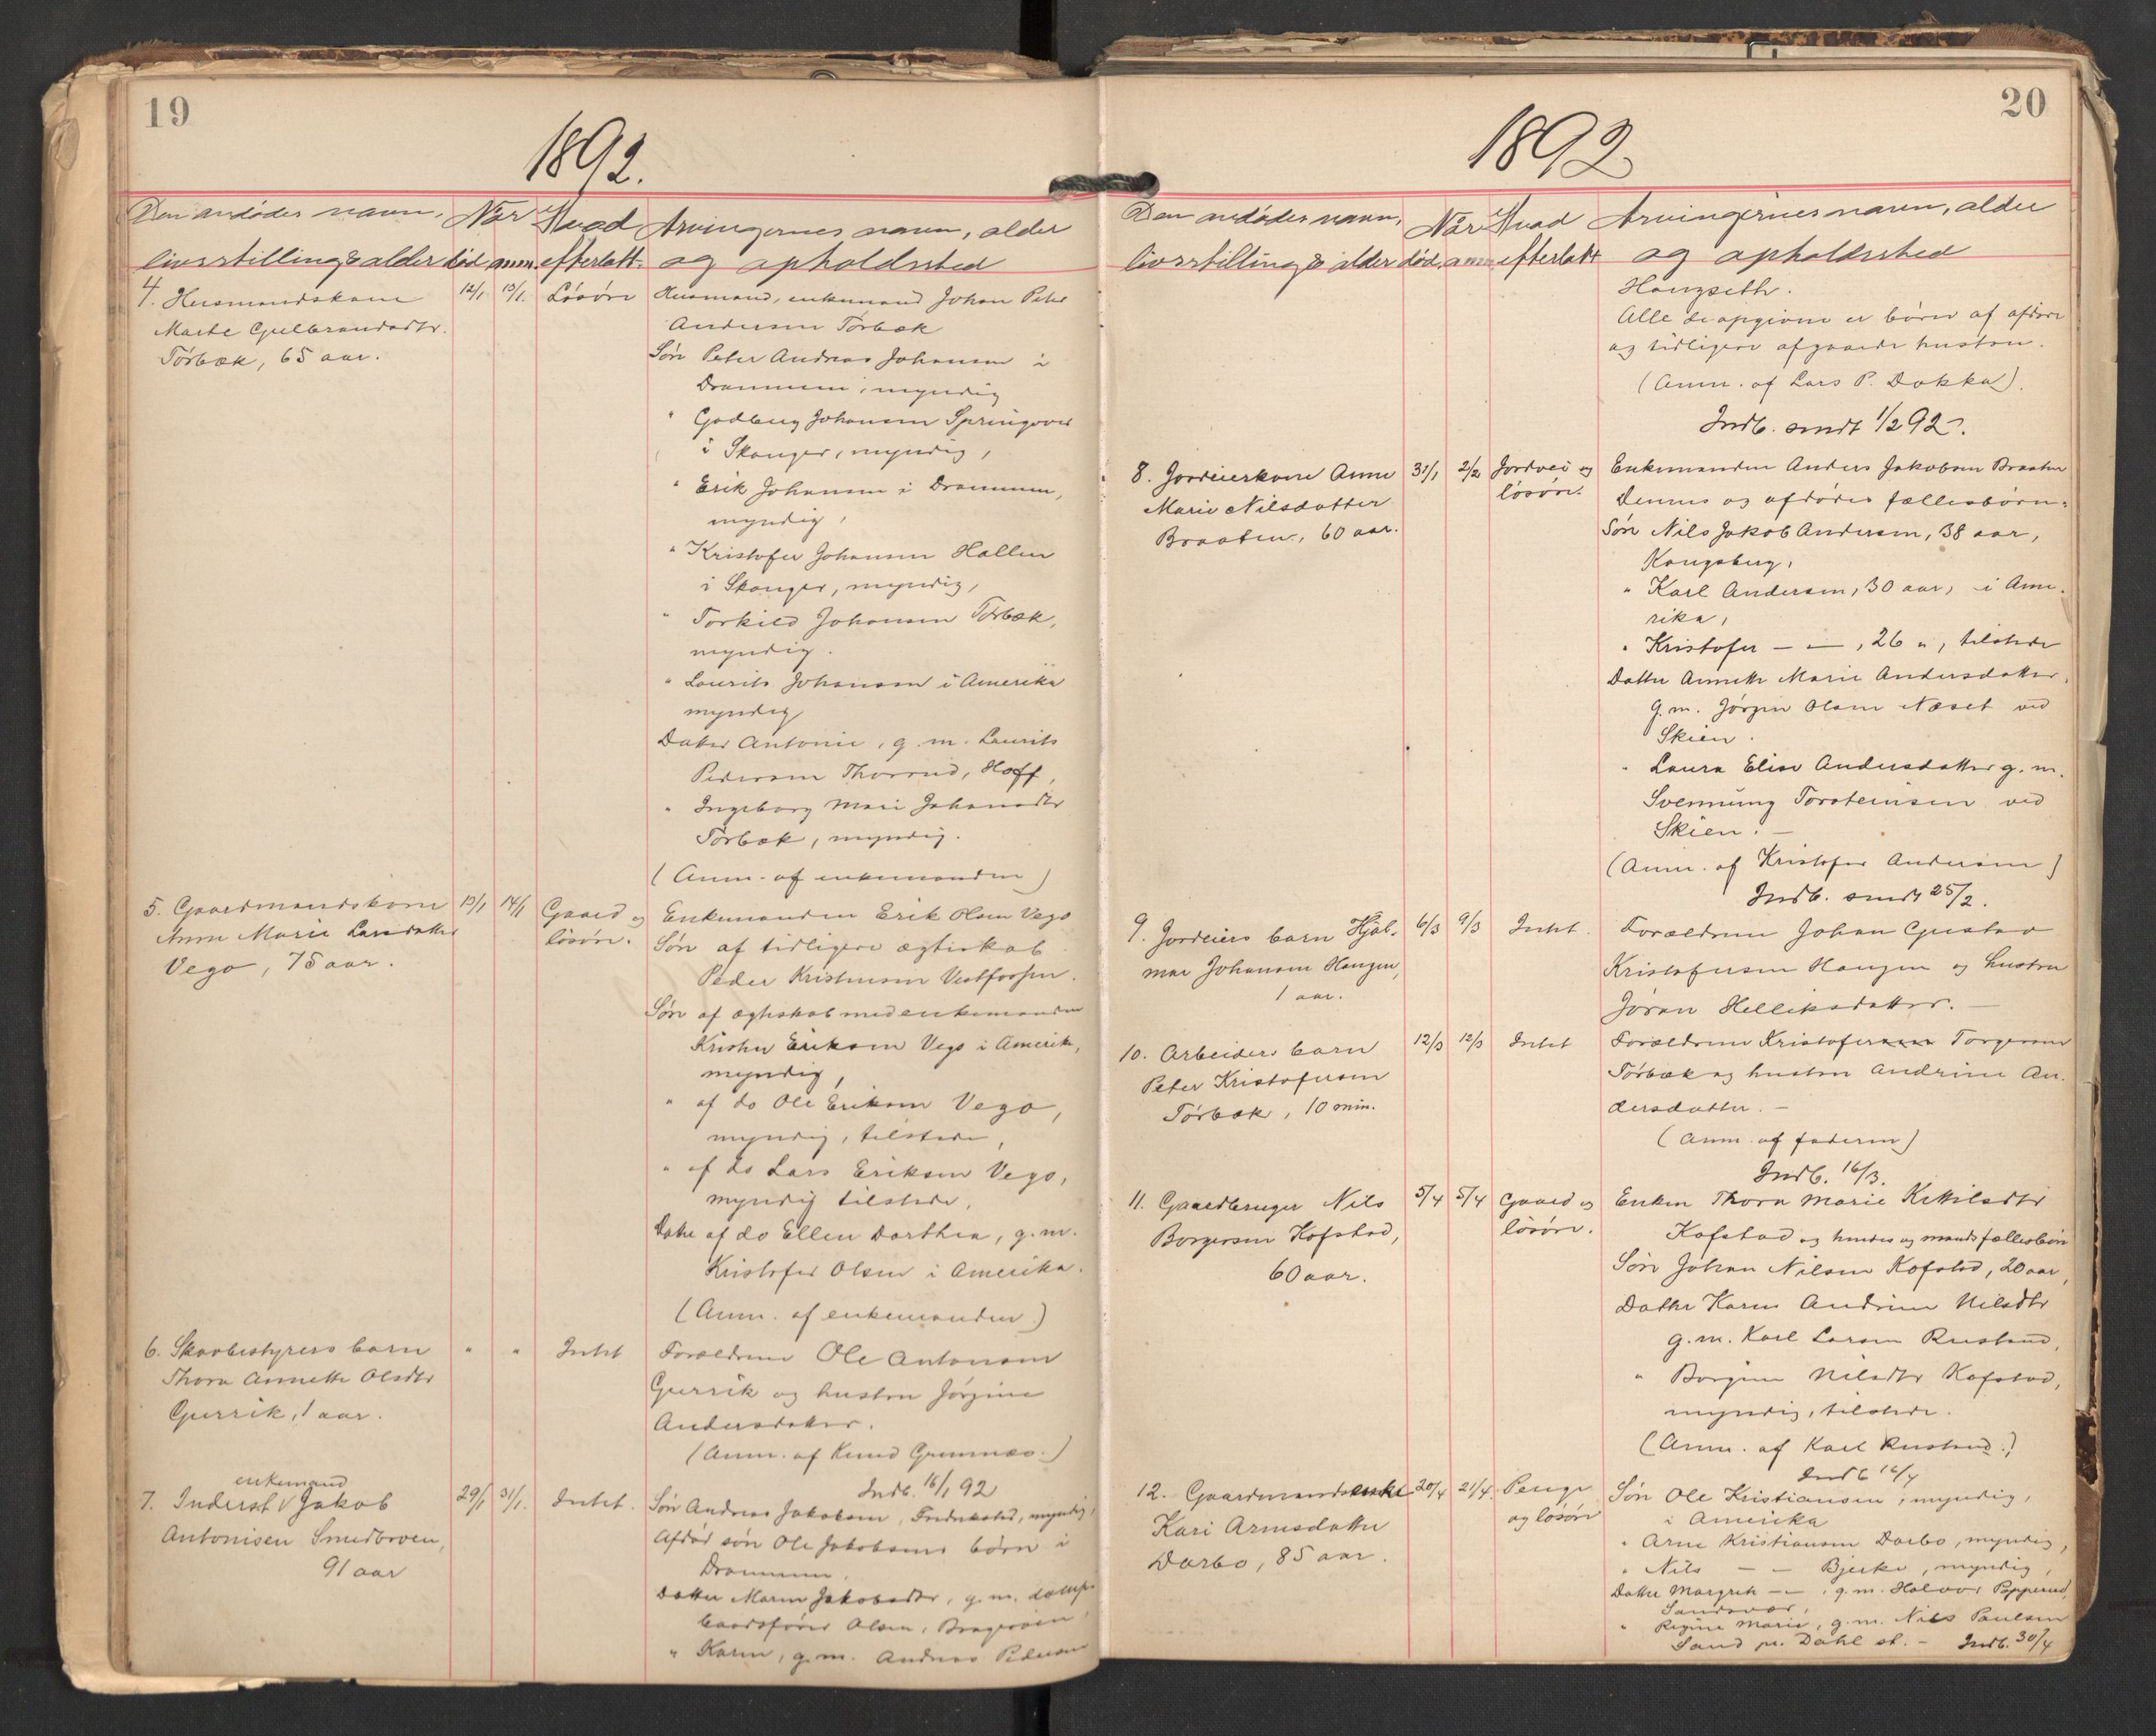 19
1892.
Den andødes navn, Når Hvad Arvingernes navn, alder
livsstilling & alder død. anm. efterlatt. og opholdssted
4. Husmandskone 12/1 13/1. Løsøre Husmand, enkemand Johan Peter
Marte Gulbrandsdtr. Andersen Törbæk
Törbæk, 65 aar. Søn Peter Andreas Johansen i
Drammen, myndig
" Gudberg Johansen
i Skoger, myndig,
" Erik Johansen i Drammen,
myndig,
" Kristofer Johansen Hallen
i Skoger, myndig,
" Torkild Johansen Törbæk,
myndig.
" Laurits Johansen i Amerika
myndig
Datter Antonie, g. m. Laurits
Pedersen Thorrud, Hoff,
" Ingeborg Mari Johansdtr
Törbæk, myndig.
(Anm. af enkemanden)
5. Gaardmandskone 13/1 14/1 Gaard og Enkemanden Erik Olsen Vego
Anne Marie Larsdatter løsøre. Søn af tidligere ægteskab
Vego, 75 aar. Peder Kristensen Vestfossen.
Søn af ægteskab med enkemanden
Kristen Eriksen Vego i Amerika,
myndig,
" af do Ole Eriksen Vego,
myndig, tilstede,
" af do Lars Eriksen Vego,
myndig tilstede,
Datter af do Ellen Dorthea, g. m.
Kristofer Olsen i Amerika.
(Anm. af enkemanden)
6. Skovbestyrers barn " " Intet Forældrene Ole Antonsen
Thora Annette Olsdtr Gurrik og hustru Jörgine
Gurrik, 1 aar. Andersdatter.
(Anm. af Knud Grennæs.)
Indb. 16/1 92
enkemand
7. Inderst V Jakob 29/1 31/1. Intet. Søn Andreas Jakobsen, Fredrikstad, myndig,
Antonisen Smedbroen, Afdød søn Ole Jakobsens børn i
91 aar Drammen.
Datter Maren Jakobsdtr, g. m. damp-
baadsfører Olsen, Bragerøen,
" Karen, g. m. Andreas Pedersen
20
1892
Den andødes navn, Når Hvad Arvingernes navn, alder
livsstilling & alder død. anm. efterlatt og opholdssted
Haugseth.
Alle de opgivne er børn af afdøde
og tidligere afgaaede hustru.
(Anm. af Lars P. Dokka).
Indb. sendt 1/2 92.
8. Jordeierskone Anne 31/1 2/2 Jordvei og Enkemanden Anders Jakobsen Braaten
Marie Nilsdatter løsøre. Dennes og afdødes fællesbørn:
Braaten, 60 aar. Søn Nils Jakob Andersen, 38 aar,
Kongsberg,
" Karl Andersen, 30 aar, i Ame-
rika,
" Kristofer — " —, 26 ", tilstede
Datter Annette Marie Andersdatter,
g. m. Jørgen Olsen Næset ved
Skien.
" Laura Elise Andersdatter g. m.
Svennung Torsteinsen ved
Skien. —
(Anm. af Kristofer Andersen)
Indb. sendt 25/2.
9. Jordeiers barn Hjal- 6/3 9/3 Intet. Forældrene Johan Gustav
mar Johansen Haugen, Kristofersen Haugen og hustru
1 aar. Jøran Helliksdatter. —
10. Arbeiders barn 12/3 12/3 Intet Forældrene Kristofer Torgersen
Peter Kristofersen Törbæk og hustru Andrine An-
Törbæk, 10 min. dersdatter. —
(Anm. af faderen)
Indb. 16/3.
11. Gaardbruger Nils 5/4 5/4 Gaard og Enken Thora Marie Kittilsdtr
Borgersen Kofstad, løsøre. Kofstad og hendes og mands fællesbörn
60 aar. Søn Johan Nilsen Kofstad, 20 aar,
Datter Karen Andrine Nilsdtr
g. m. Karl Larsen Rustand,
" Borgine Nilsdtr Kofstad,
myndig, tilstede.
(Anm. af Karl Rustand.)
Indb 16/4
12. Gaardmandsenke 20/4 21/4. Penge Søn Ole Kristiansen, myndig,
Kari Arnesdatter og løsøre i Amerika
Darbo, 85 aar. " Arne Kristiansen Darbo, myndig,
" Nils — " — Bjerke, myndig,
Datter Margreth — " —, g. m. Halvor Popperud,
Sandsvær,
" Regine Marie, g. m. Nils Paulsen
Sand pr. Dahl st. — Indb. 30/4